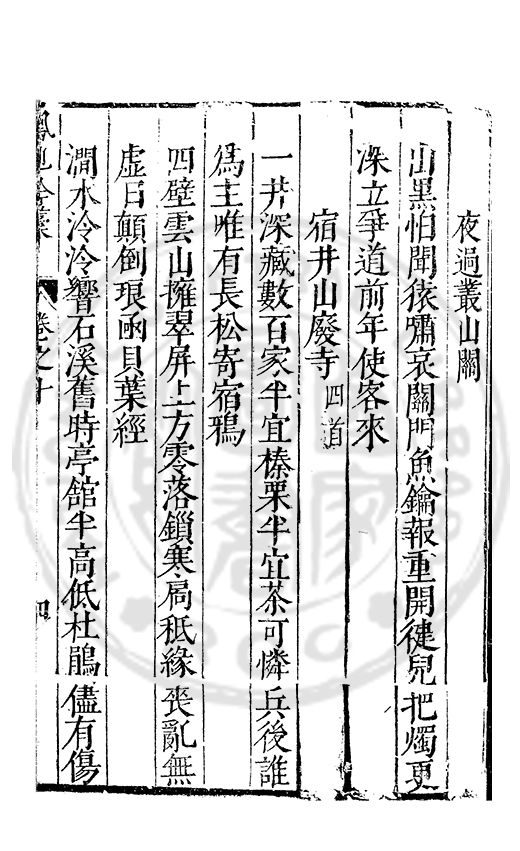 夜過叢山關
山黑怕聞猿嘯哀關門魚鑰報重開健兒把燭更
深立爭道前年使客來
宿井山廢寺 四首
一井深藏數百家半宜榛栗半宜茶可憐兵後誰
爲主唯有長松寄宿鴉
四壁雲山擁翠屏上方零落鎖寒扃秪緣喪亂無
虛日顛倒琅函貝葉經
澗水泠泠響石溪舊時亭館半高低杜鵑儘有傷
卷之十
四